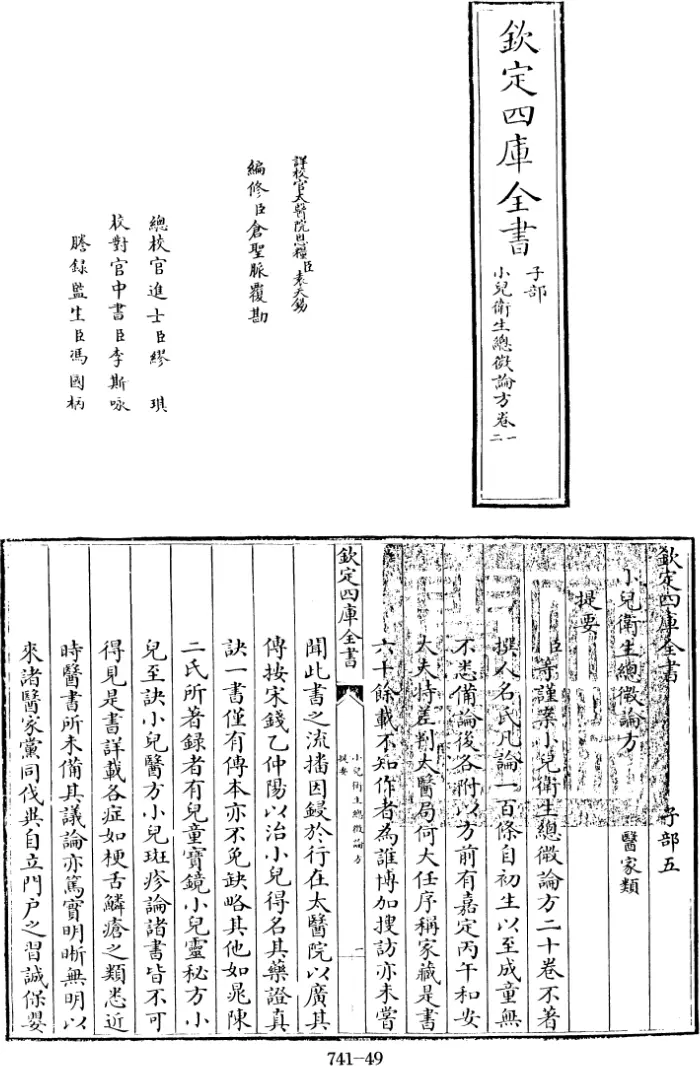 欽定四庫全書
子部
小兒衛生總微論方卷一二
詳校官太醫院恩糧臣袁天錫
編修臣倉聖脈覆勘
總校官進士臣繆琪
校對官中書臣李斯咏
謄録監生臣馮國柄
欽定四庫全書
子部五
小兒衛生總微論方
醫家類
提要
臣等謹案小兒衛生總微論方二十卷不著
撰人名氏凡論一百條自初生以至成童無
不悉備論後各附以方前有嘉定丙午和安
大夫特差判太醫局何大任序稱家藏是書
六十餘載不知作者為誰博加搜訪亦未嘗
欽定四庫全書
小兒衛生總微論方
提要
一
聞此書之流播因鋟於行在太醫院以廣其
傳按宋錢乙仲陽以治小兒得名其藥證真
訣一書僅有傳本亦不免缺略其他如晁陳
二氏所著録者有兒童寶鏡小兒靈秘方小
兒至訣小兒醫方小兒斑疹論諸書皆不可
得見是書詳載各症如梗舌鱗瘡之類悉近
時醫書所未備其議論亦篤實明晰無明以
來諸醫家黨同伐異自立門户之習誠保嬰
741-49